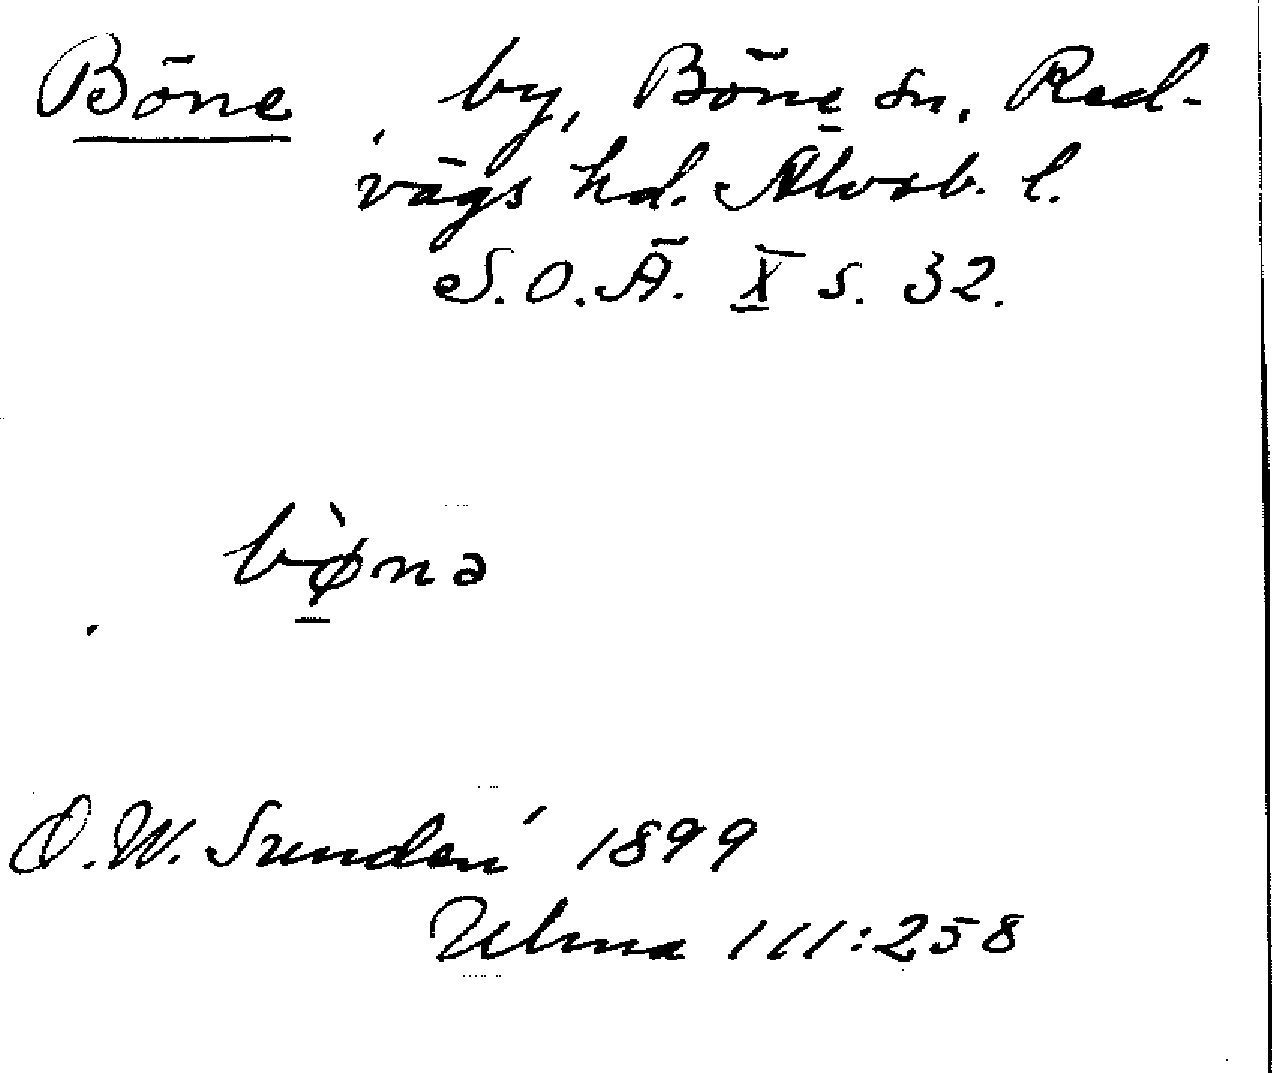 Böne by, Böne sn, Red-
vägs hd. Älvsb. l.
S.O.Ä. X s. 32.
bø̀nə
O.W. Sundén 1899
Ulma 111:258